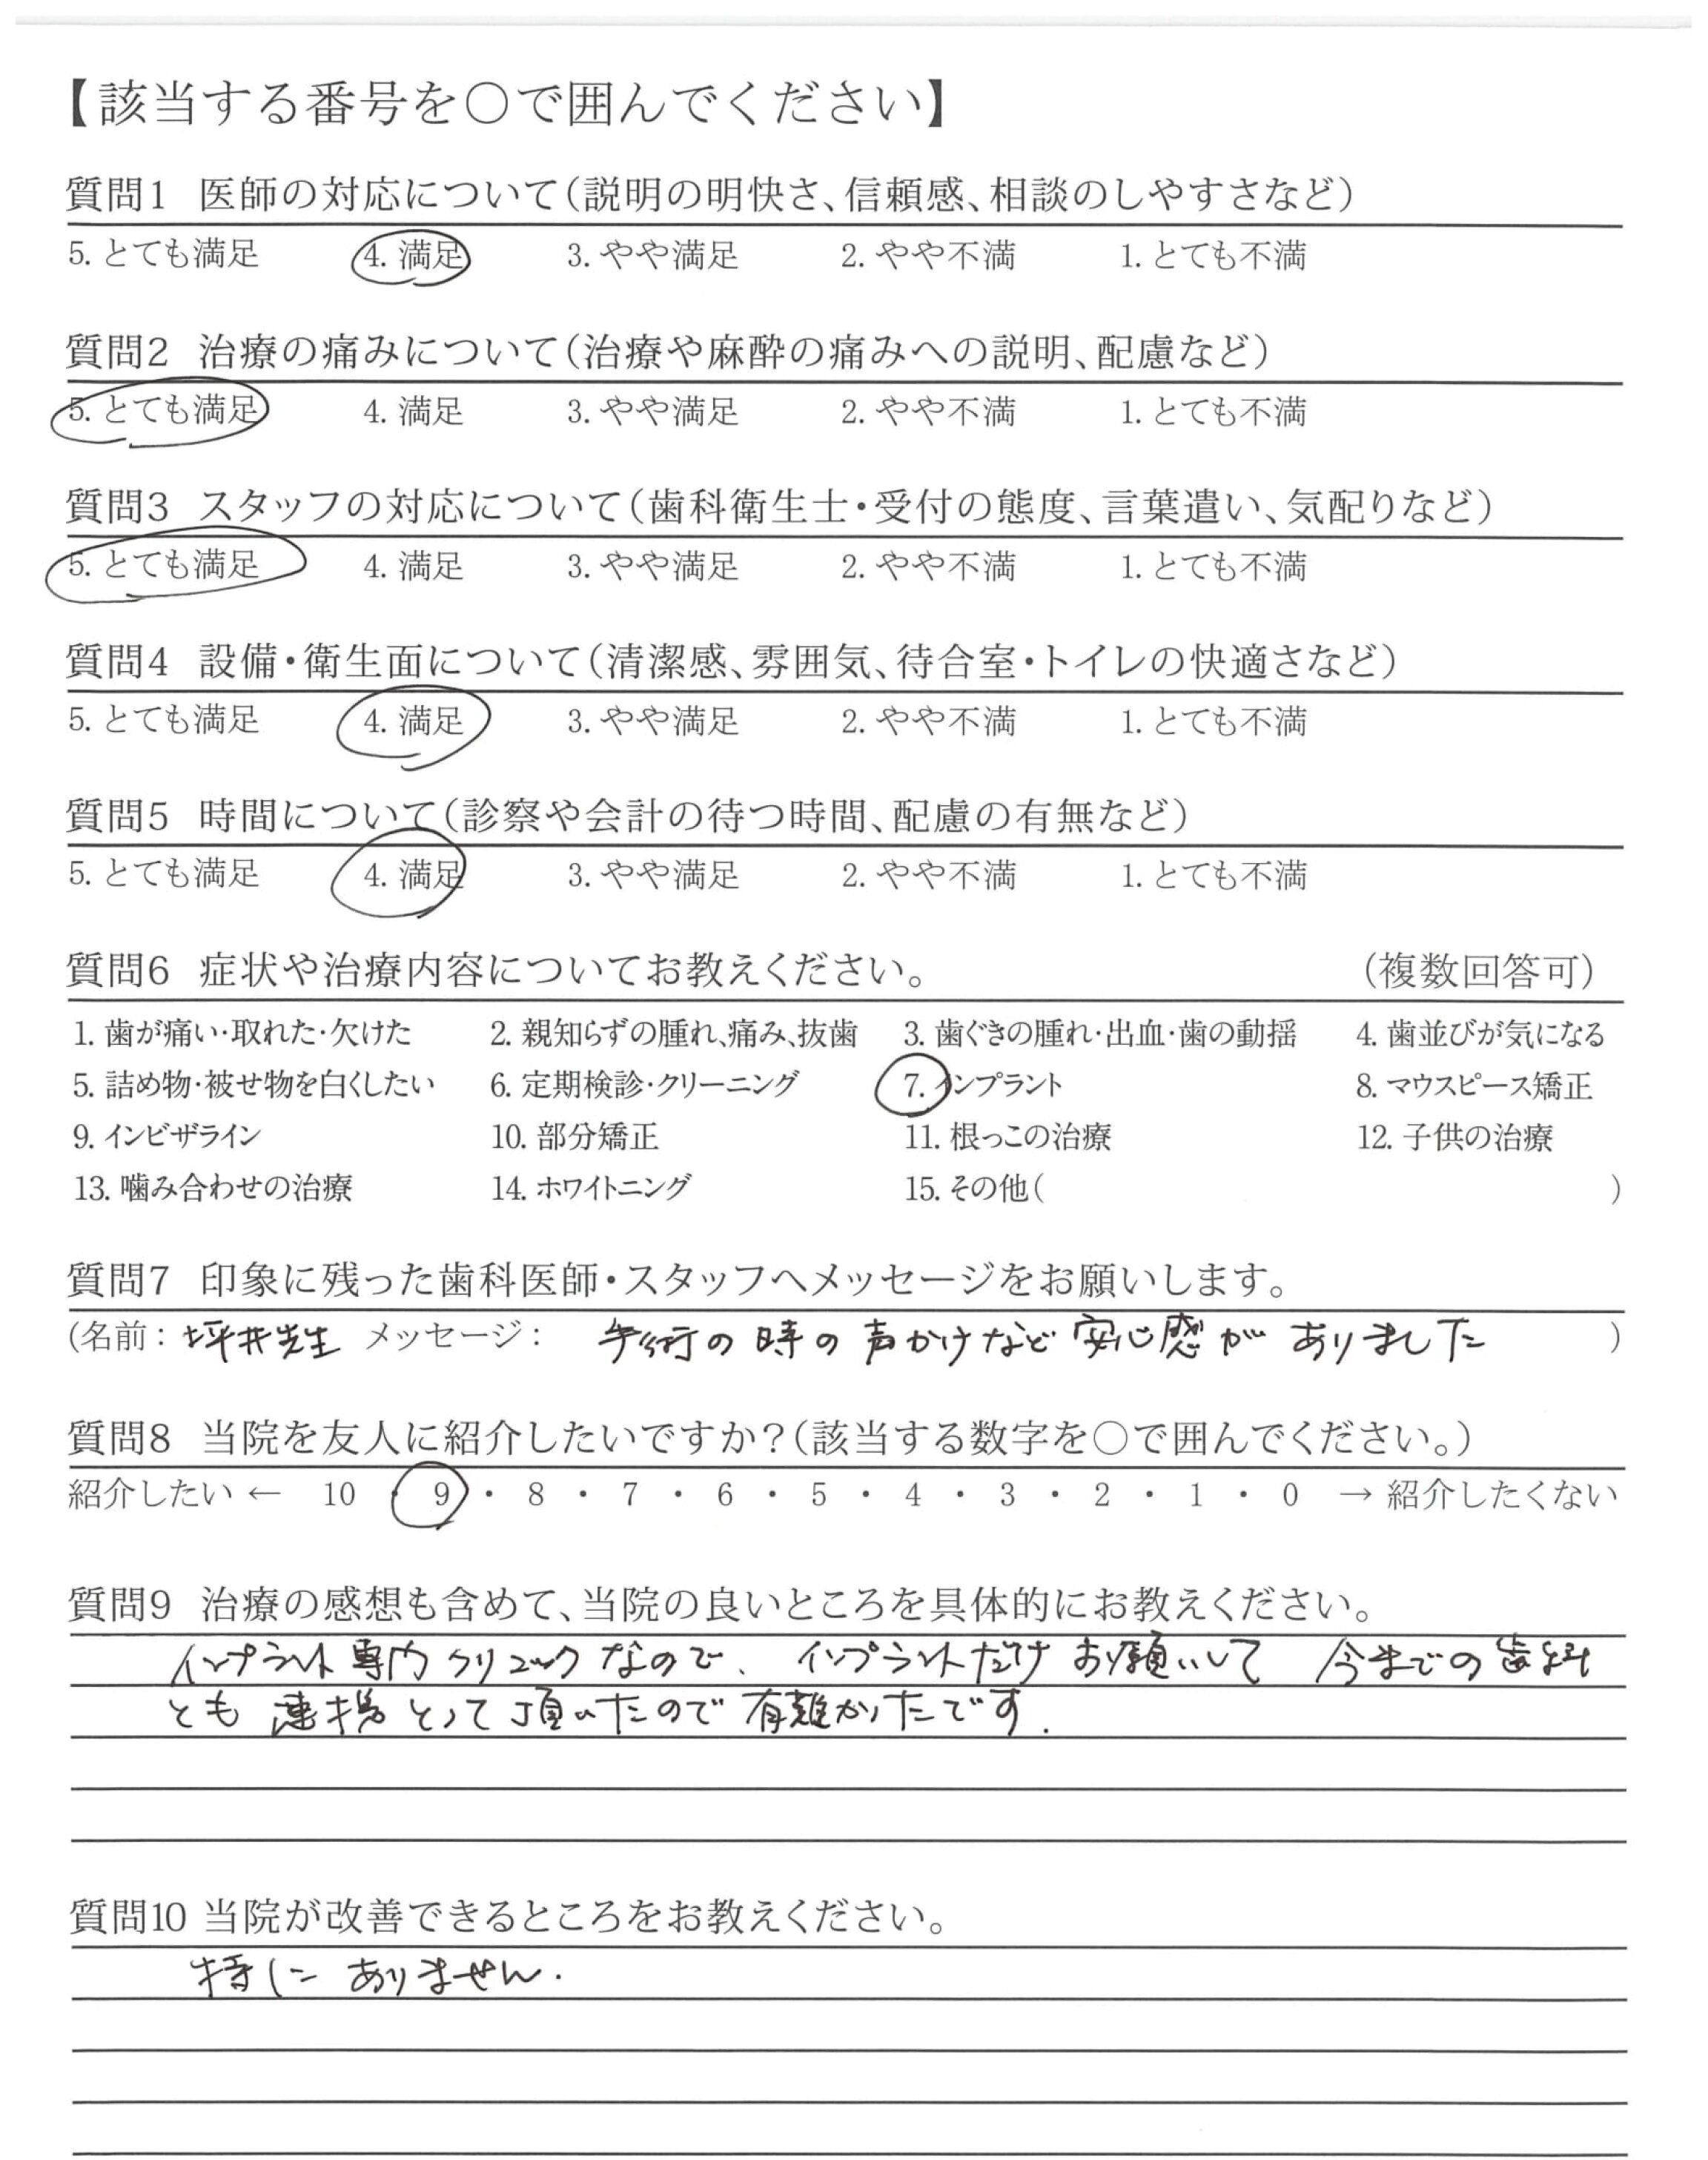 【該当する番号を○で囲んでください】
質問1 医師の対応について（説明の明快さ、信頼感、相談のしやすさなど）
5. とても満足 4. 満足 3. やや満足 2. やや不満 1. とても不満
質問2 治療の痛みについて（治療や麻酔の痛みへの説明、配慮など）
5. とても満足 4. 満足 3. やや満足 2. やや不満 1. とても不満
質問3 スタッフの対応について（歯科衛生士・受付の態度、言葉遣い、気配りなど）
5. とても満足 4. 満足 3. やや満足 2. やや不満 1. とても不満
質問4 設備・衛生面について（清潔感、雰囲気、待合室・トイレの快適さなど）
5. とても満足 4. 満足 3. やや満足 2. やや不満 1. とても不満
質問5 時間について（診察や会計の待つ時間、配慮の有無など）
5. とても満足 4. 満足 3. やや満足 2. やや不満 1. とても不満
質問6 症状や治療内容についてお教えください。 （複数回答可）
1. 歯が痛い・取れた・欠けた 2. 親知らずの腫れ、痛み、抜歯 3. 歯ぐきの腫れ・出血・歯の動揺 4. 歯並びが気になる
5. 詰め物・被せ物を白くしたい 6. 定期検診・クリーニング 7. インプラント 8. マウスピース矯正
9. インビザライン 10. 部分矯正 11. 根っこの治療 12. 子供の治療
13. 噛み合わせの治療 14. ホワイトニング 15. その他（ ）
質問7 印象に残った歯科医師・スタッフへメッセージをお願いします。
（名前：坪井先生 メッセージ： 手術の時の声かけなど安心感がありました ）
質問8 当院を友人に紹介したいですか？（該当する数字を○で囲んでください。）
紹介したい ← 10 ・ 9 ・ 8 ・ 7 ・ 6 ・ 5 ・ 4 ・ 3 ・ 2 ・ 1 ・ 0 → 紹介したくない
質問9 治療の感想も含めて、当院の良いところを具体的にお教えください。
インプラント専門クリニックなので、インプラントだけお願いして 今までの歯科
とも連携とって頂いたので有難かったです.
質問10 当院が改善できるところをお教えください。
特にありません.